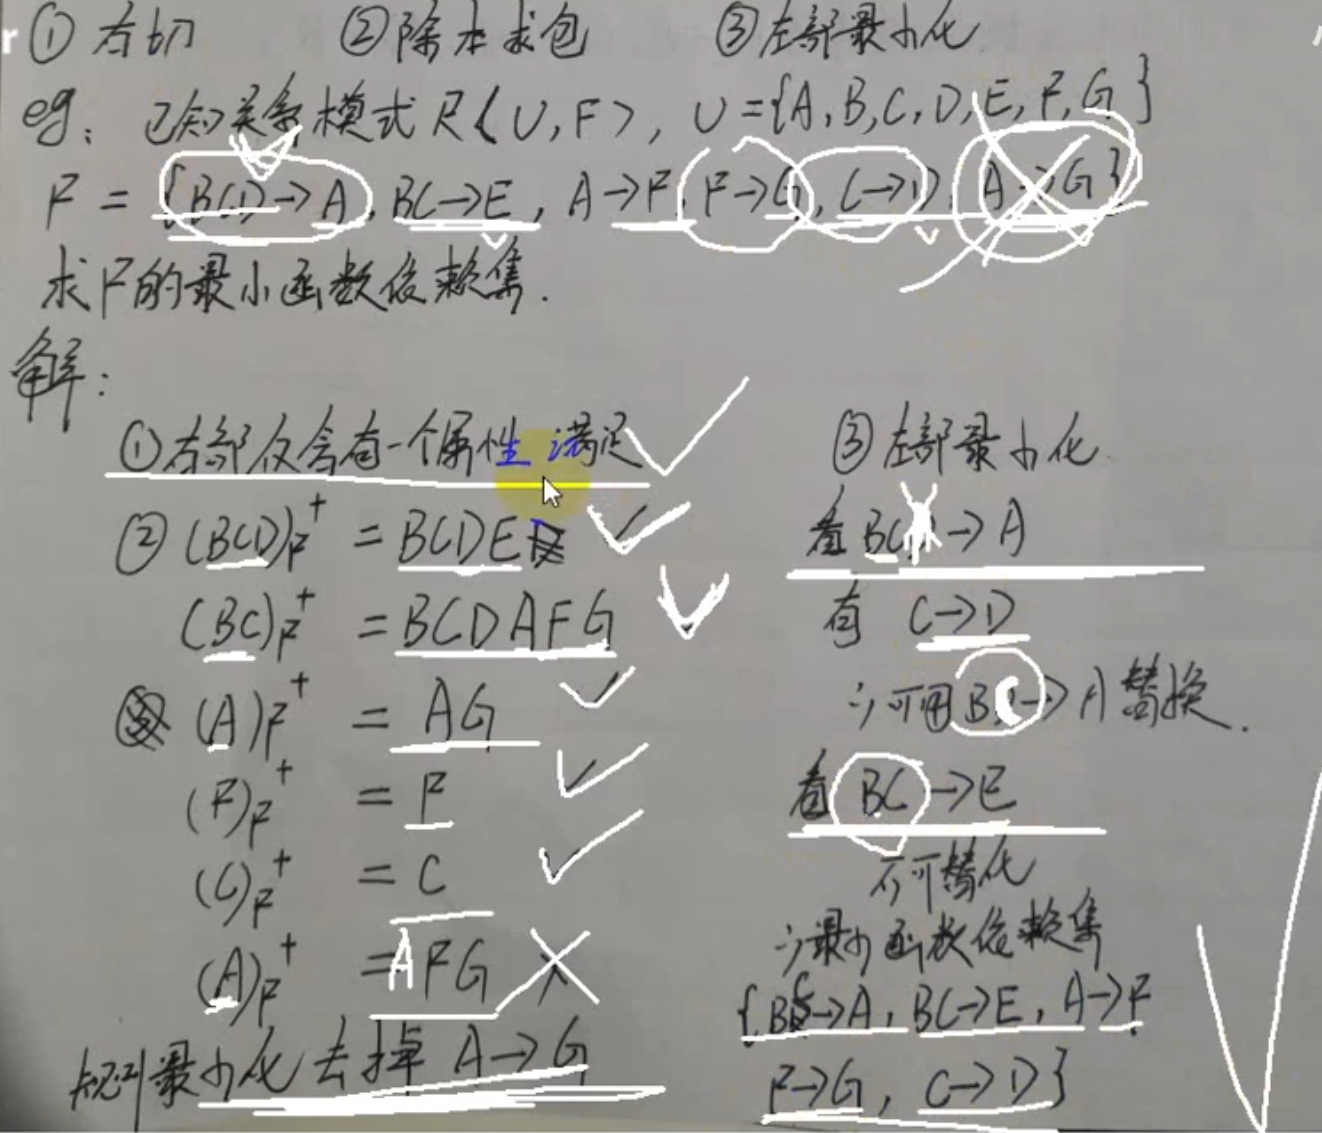 ①右切 ②除本求包 ③左部最小化
eg: 已知关系模式R<U,F>, U={A,B,C,D,E,F,G}
F = {BCD→A, BC→E, A→F, F→G, C→D, A→G}
求F的最小函数依赖集.
解:
①右部仅含有一个属性 满足
② (BCD)F+ = BCDE
(BC)F+ = BCDAFG
(A)F+ = AG
(F)F+ = F
(C)F+ = C
(A)F+ = AFG
规则最小化去掉 A→G
③左部最小化
看 BCD→A
有 C→D
∴可用BC→A替换.
看 BC→E
不可替化
∴最小函数依赖集
{BC→A, BC→E, A→F
F→G, C→D}